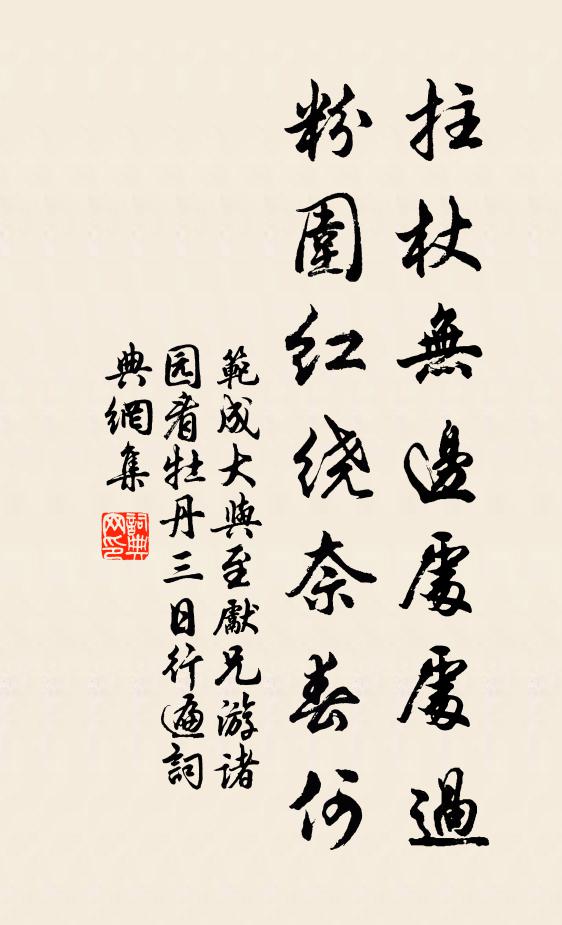 拄杖無邊處處過
粉圍紅绕奈春何
範成大與至獻兄游诸
园看牡丹三日行遍詞
典網集
詞典網印